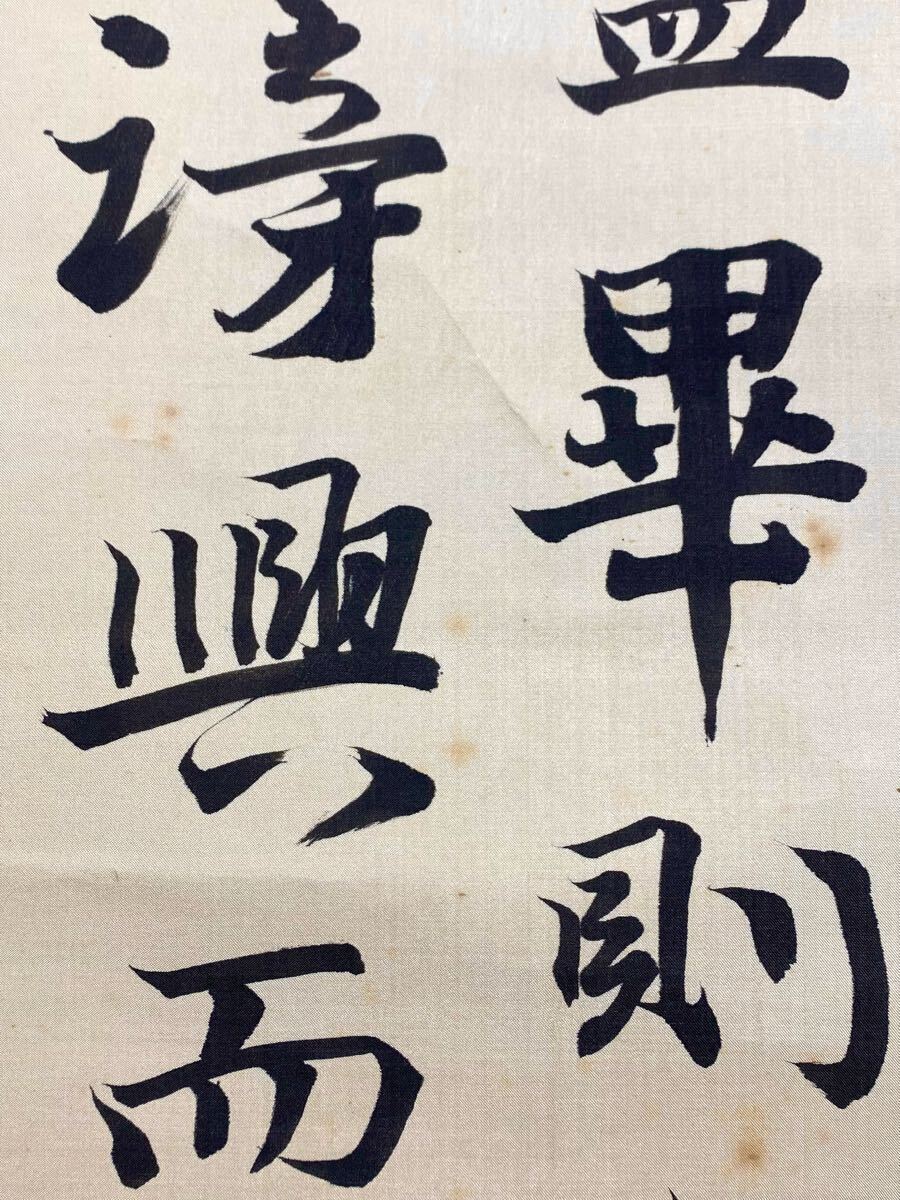 畢則
謗興而